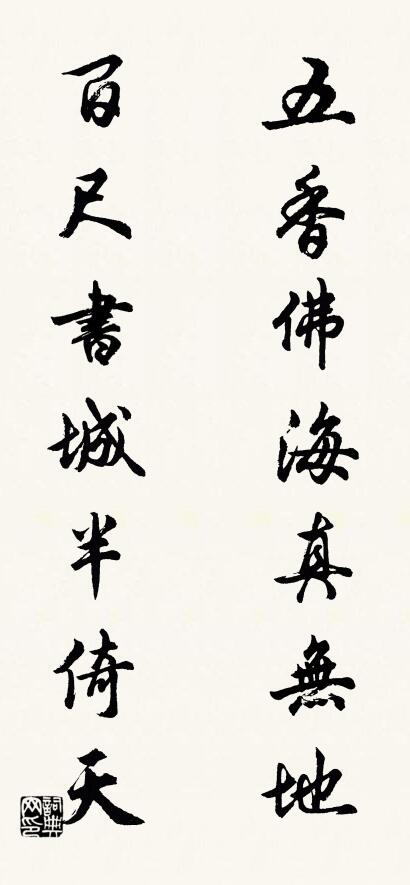 五香佛海真無地
百尺書城半倚天
詞典网印